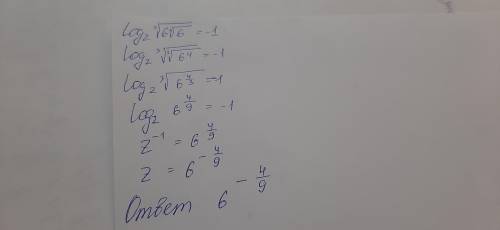 log_z ∛(6∛6) = -1
log_z ∛(∛(6⁴)) = -1
log_z ∛(6^(4/3)) = -1
log_z 6^(4/9) = -1
z⁻¹ = 6^(4/9)
z = 6^(-4/9)
Ответ 6^(-4/9)